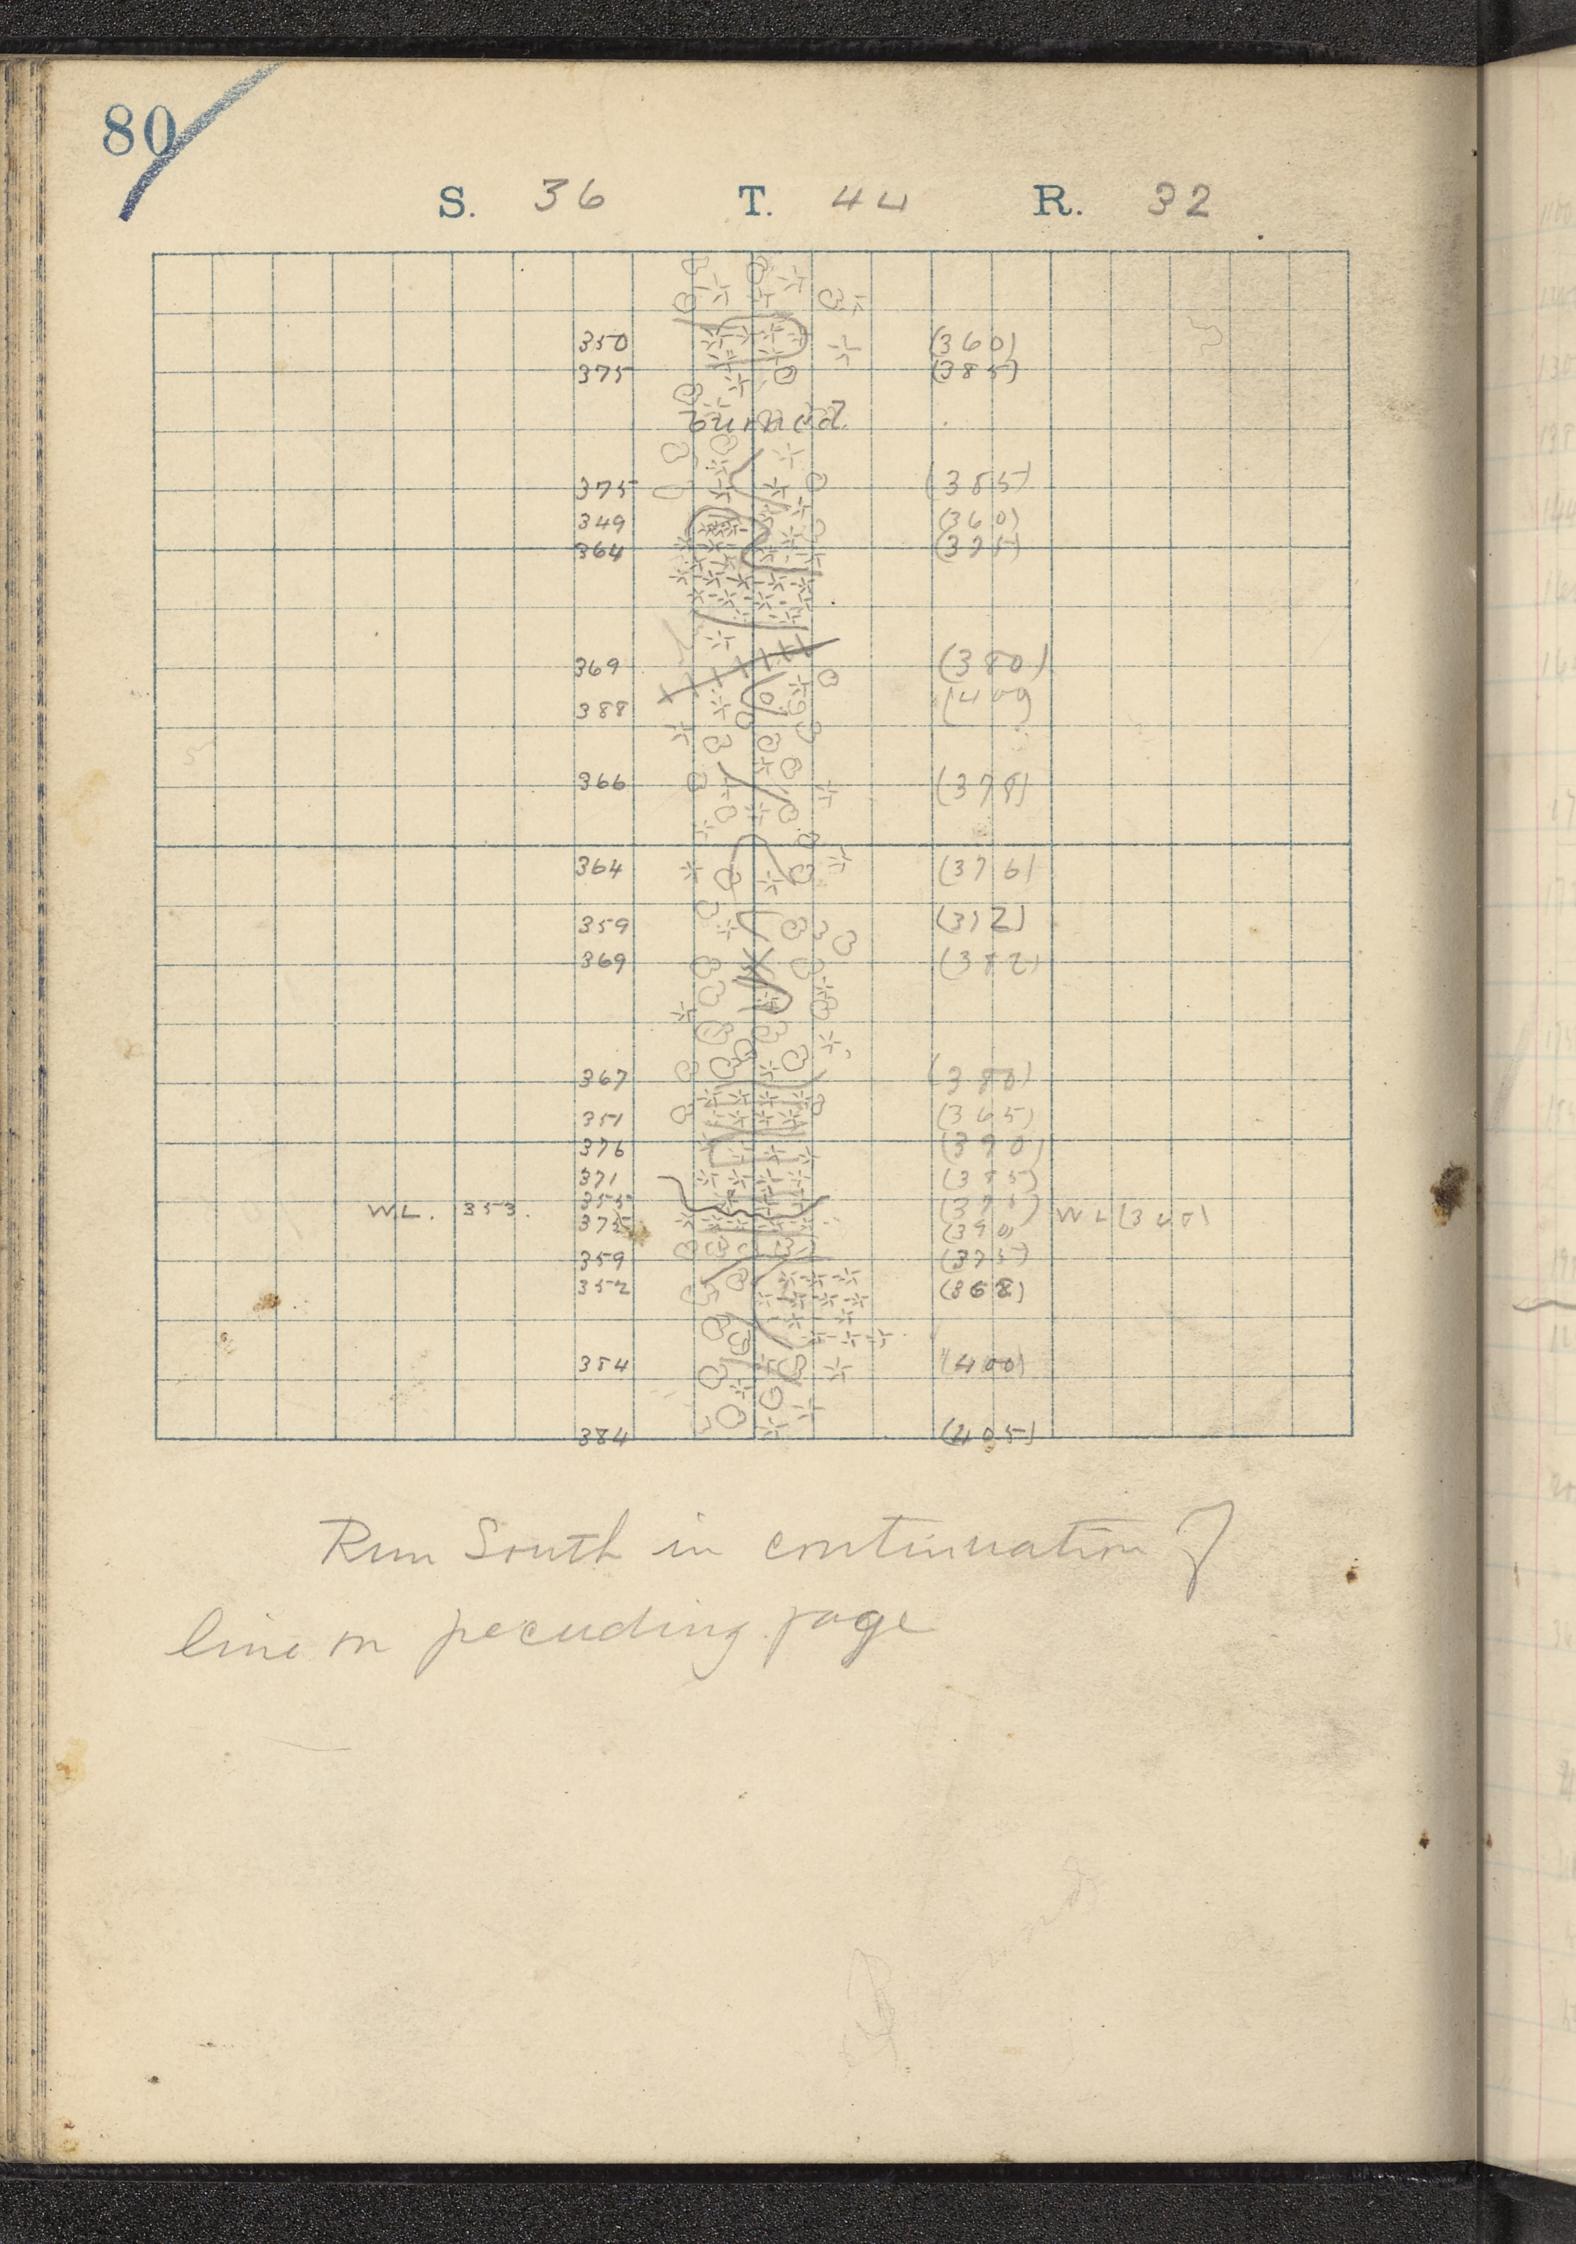 80
S. 36 T. 44 R. 32
350 (360)
375 (385)
burned
375 (385)
349 (360)
364 (375)
369 (380)
388
366 (378)
364 (376)
359 (372)
369 (382)
367 (380)
351 (365)
376 (390)
371 (385)
W.L. 353. 355 W L
375 (390)
359 (375)
352 (368)
384 (400)
384 (405)
Run South in continuation of
line on preceeding page